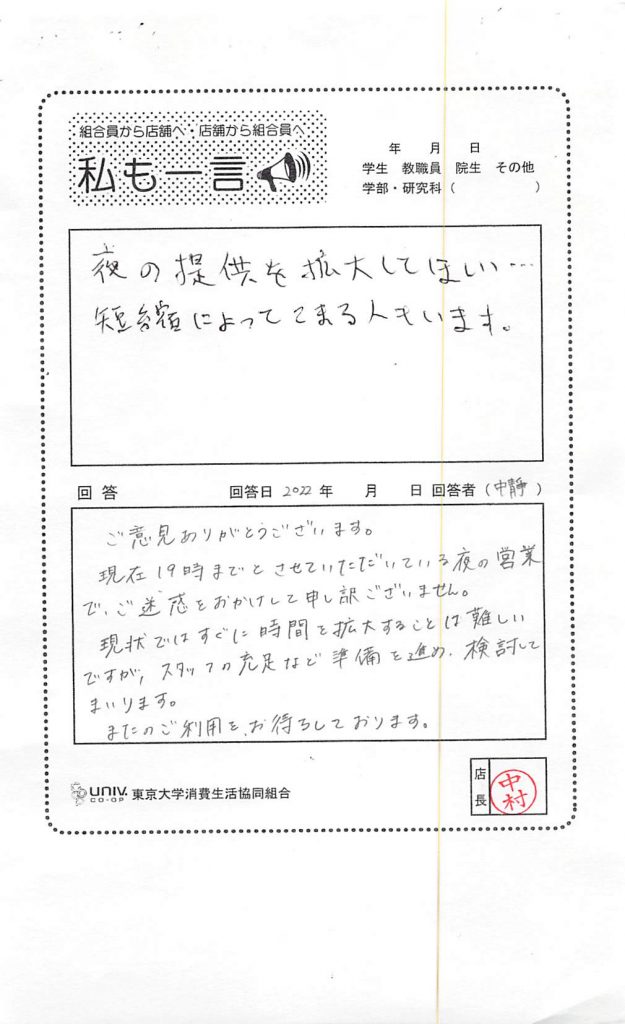 組合員から店舗へ・店舗から組合員へ
私も一言
年 月 日
学生 教職員 院生 その他
学部・研究科（ ）
夜の提供を拡大してほしい…
短縮によってこまる人もいます。
回答 回答日 2022 年 月 日 回答者（中静）
ご意見ありがとうございます。
現在19時までとさせていただいている夜の営業
で、ご迷惑をおかけして申し訳ございません。
現状ではすぐに時間を拡大することは難しい
ですが、スタッフの充足など準備を進め、検討して
まいります。
またのご利用を、お待ちしております。
UNIV. CO-OP 東京大学消費生活協同組合
店長 中村